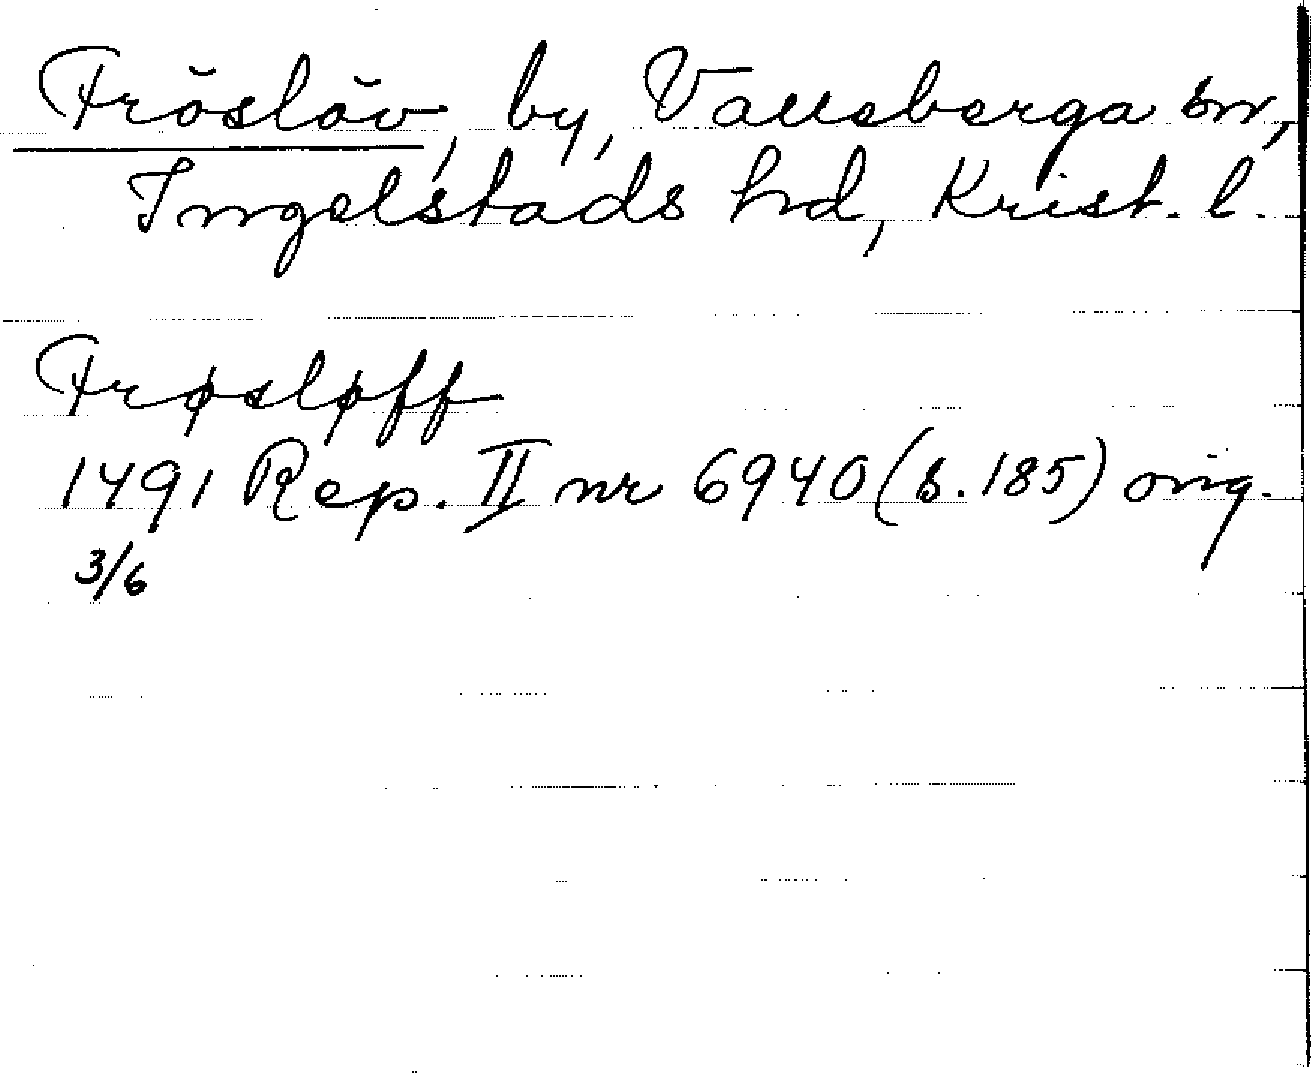 Fröslöv, by, Valleberga sn,
Ingelstads hd, Krist. l.
Frøsløff
1491 Rep. II nr 6940 (s. 185) orig.
3/6